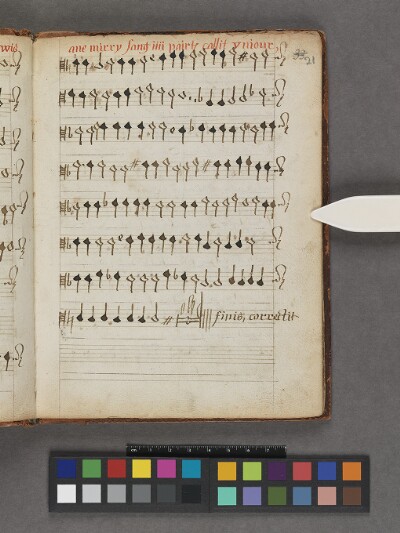 ane mirry sang iiii pairte callit yniour
21
finis, correctit